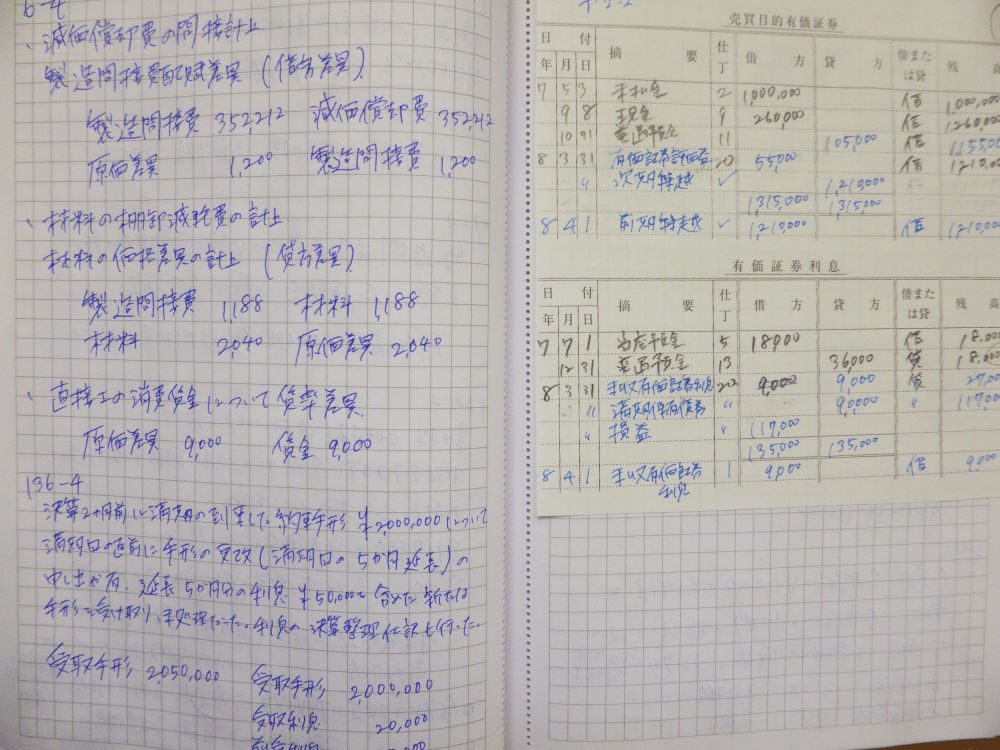 6-4
、減価償却費の間接計上
製造間接費配賦差異(借方差異)
製造間接費 352,212 減価償却費 352,212
原価差異 1,200 製造間接費 1,200
、材料の棚卸減耗費の計上
材料の価格差異の計上(貸方差異)
製造間接費 1,188 材料 1,188
材料 2,040 原価差異 2,040
、直接工の消費賃金について賃率差異
原価差異 9,000 賃金 9,000
136-4
決算2ヶ月前に満期の到来した約束手形 ¥2,000,000について
満期日の直前に手形の更改(満期日の5か月延長)の
申し出が有、延長5か月分の利息 ¥50,000を含めた新たな
手形を受け取り、未処理だった。利息の決算整理仕訳も行った。
受取手形 2,050,000 受取手形 2,000,000
受取利息 20,000
売買目的有価証券
日付 摘要 仕丁 借方 貸方 借または貸 残
年 月 日
7 5 3 未払金 2 1,000,000 借 1,000,000
9 8 現金 9 260,000 借 1,260,000
10 当座預金 11 105,000 借 1,155,000
8 3 31 有価証券評価益 20 55,000 借 1,210,000
〃 次期繰越 ✓ 1,210,000
1,315,000 1,315,000
8 4 1 前期繰越 ✓ 1,210,000 借 1,210,000
有価証券利息
日付 摘要 仕丁 借方 貸方 借または貸 残高
年 月 日
7 7 1 当座預金 5 18,000 借 18,000
12 31 普通預金 13 36,000 貸 18,000
8 3 31 未収有価証券利息 20 9,000 貸 27,00
〃 満期保有債券 〃 90,000 〃 117,00
〃 損益 〃 117,000
135,000 135,000
8 4 1 未収有価証券利息 1 9,000 借 9,000